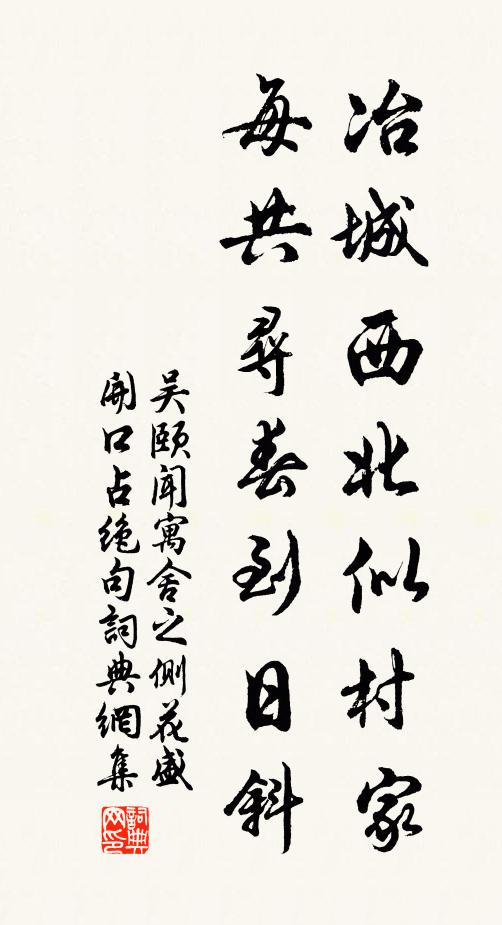 冶城西北似村家
每共尋春到日斜
吴颐闻寓舍之側花盛
開口占绝句詞典網集
詞典网印